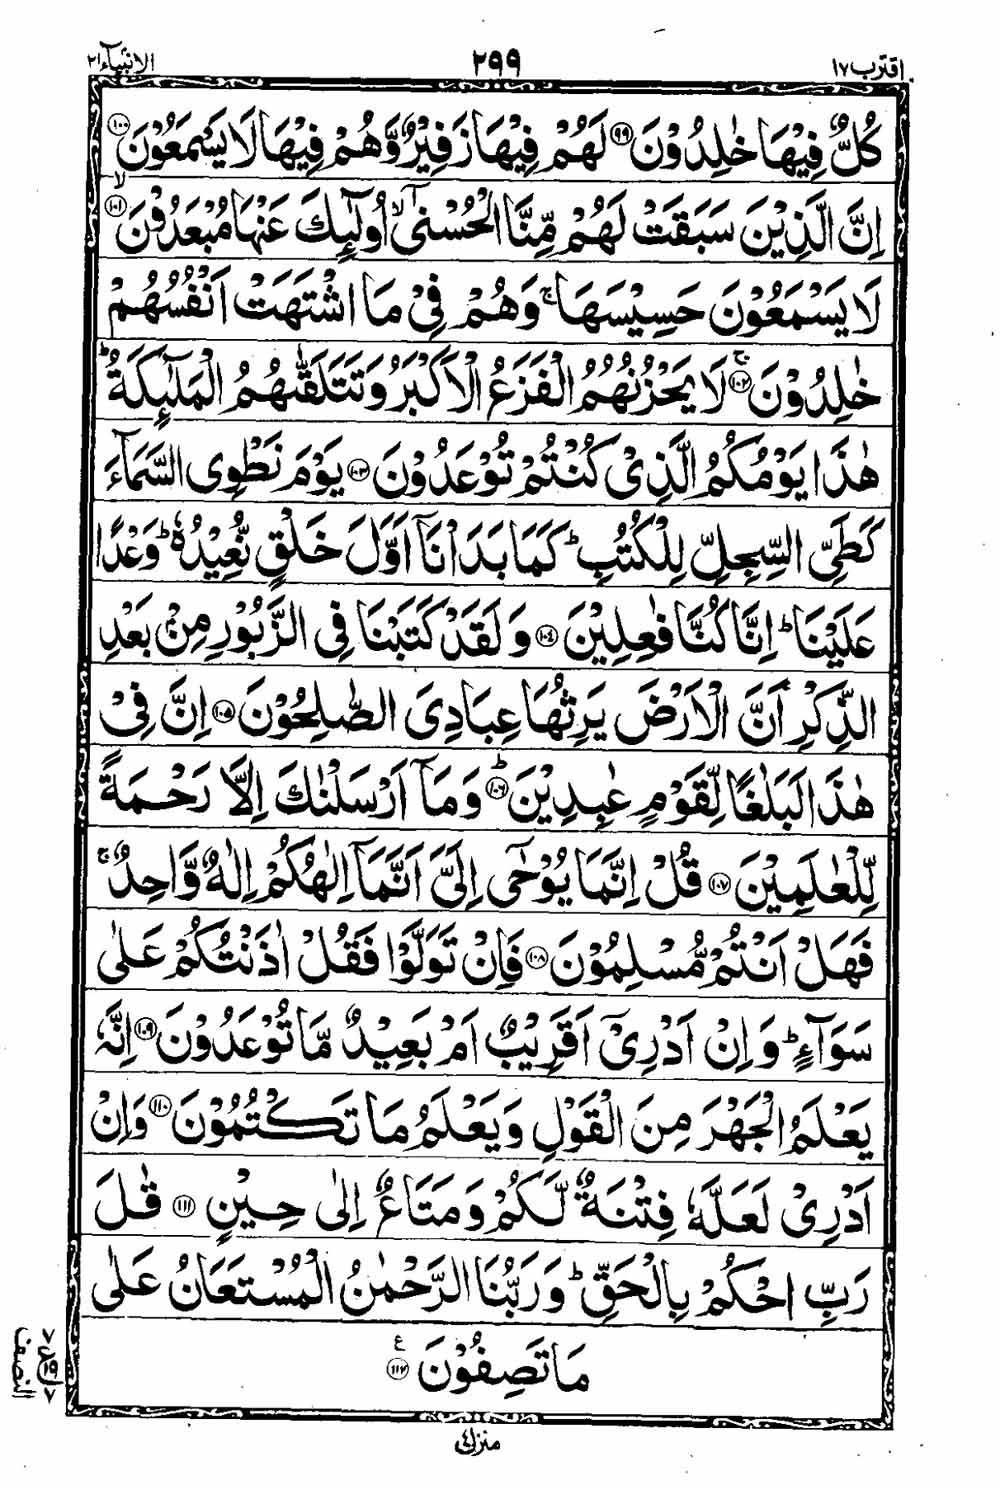 اقترب ١٧ ٢٩٩ الانبیآء ٢١
كُلٌّ فِيْهَا خٰلِدُوْنَ ۹۹ لَهُمْ فِيْهَا زَفِيْرٌ وَّهُمْ فِيْهَا لَا يَسْمَعُوْنَ ۱۰۰
اِنَّ الَّذِيْنَ سَبَقَتْ لَهُمْ مِّنَّا الْحُسْنٰٓى ۙ اُولٰٓئِكَ عَنْهَا مُبْعَدُوْنَ ۙ ۱۰۱
لَا يَسْمَعُوْنَ حَسِيْسَهَا ۚ وَهُمْ فِيْ مَا اشْتَهَتْ اَنْفُسُهُمْ
خٰلِدُوْنَ ۚ ۱۰۲ لَا يَحْزُنُهُمُ الْفَزَعُ الْاَكْبَرُ وَتَتَلَقّٰىهُمُ الْمَلٰٓئِكَةُ ؕ
هٰذَا يَوْمُكُمُ الَّذِيْ كُنْتُمْ تُوْعَدُوْنَ ۱۰۳ يَوْمَ نَطْوِى السَّمَآءَ
كَطَيِّ السِّجِلِّ لِلْكُتُبِ ؕ كَمَا بَدَاْنَآ اَوَّلَ خَلْقٍ نُّعِيْدُهٗ ؕ وَعْدًا
عَلَيْنَا ؕ اِنَّا كُنَّا فٰعِلِيْنَ ۱۰۴ وَلَقَدْ كَتَبْنَا فِى الزَّبُوْرِ مِنْۢ بَعْدِ
الذِّكْرِ اَنَّ الْاَرْضَ يَرِثُهَا عِبَادِيَ الصّٰلِحُوْنَ ۱۰۵ اِنَّ فِيْ
هٰذَا لَبَلٰغًا لِّقَوْمٍ عٰبِدِيْنَ ؕ ۱۰۶ وَمَآ اَرْسَلْنٰكَ اِلَّا رَحْمَةً
لِّلْعٰلَمِيْنَ ۱۰۷ قُلْ اِنَّمَا يُوْحٰٓى اِلَيَّ اَنَّمَآ اِلٰهُكُمْ اِلٰهٌ وَّاحِدٌ ۚ
فَهَلْ اَنْتُمْ مُّسْلِمُوْنَ ۱۰۸ فَاِنْ تَوَلَّوْا فَقُلْ اٰذَنْتُكُمْ عَلٰى
سَوَآءٍ ؕ وَاِنْ اَدْرِيْٓ اَقَرِيْبٌ اَمْ بَعِيْدٌ مَّا تُوْعَدُوْنَ ۱۰۹ اِنَّهٗ
يَعْلَمُ الْجَهْرَ مِنَ الْقَوْلِ وَيَعْلَمُ مَا تَكْتُمُوْنَ ۱۱۰ وَاِنْ
اَدْرِيْ لَعَلَّهٗ فِتْنَةٌ لَّكُمْ وَمَتَاعٌ اِلٰى حِيْنٍ ۱۱۱ قٰلَ
رَبِّ احْكُمْ بِالْحَقِّ ؕ وَرَبُّنَا الرَّحْمٰنُ الْمُسْتَعَانُ عَلٰى
مَا تَصِفُوْنَ ۱۱۲ ع
النصف
منزل ٤